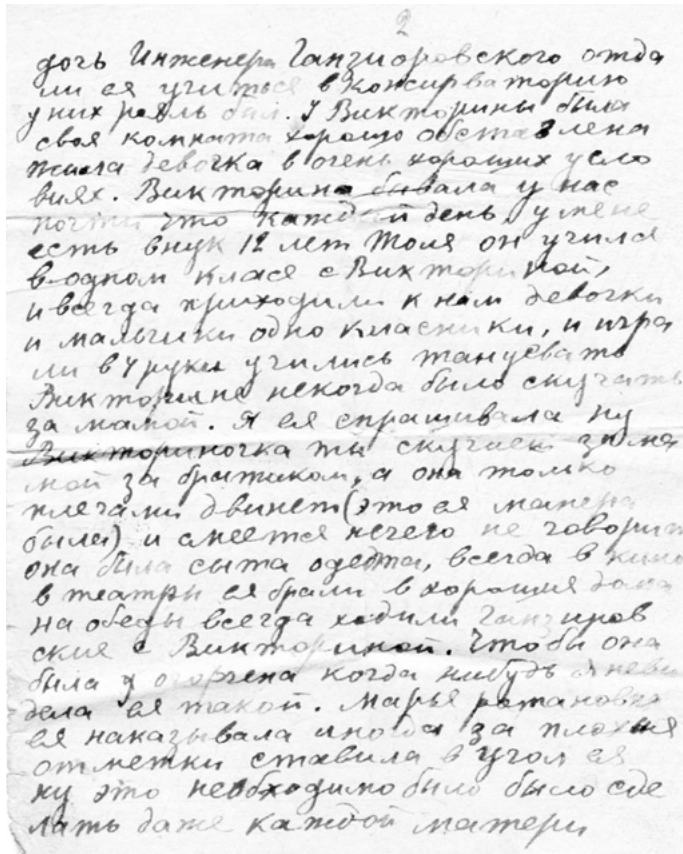 2
дочь Инженера Ганзиоровского отда
ли ея учиться в консирваторию
у них рояль был. У Викторины была
своя комната хорошо обставлена
жила девочка в очень хороших усло
виях. Викторина бывала у нас
почти что каждый день, у мене
есть внук 12 лет Толя он учился
в одном клася с Викториной,
и всегда приходили к нам девочки
и мальчики одно класники, и игра
ли в 4 руки учились танцевать
Викторине некогда было скучать
за мамой. Я ея спрашивала ну
Викториночка ты скучаеш за ма
мой за братиком, а она только
плечами двинет (это ея манера
была) и смеется нечего не говорит
она была сыта одета, всегда в кино
в театры ея брали в хорошия дома
на обеды всегда ходили Ганзиров
ские с Викториной. Что бы она
была огорчена когда нибудь я неви
дела ея такой. Марья
ея наказывала иногда за плохия
отметки ставила в угол ея
ну это необходимо было было сде
лать даже каждой матери